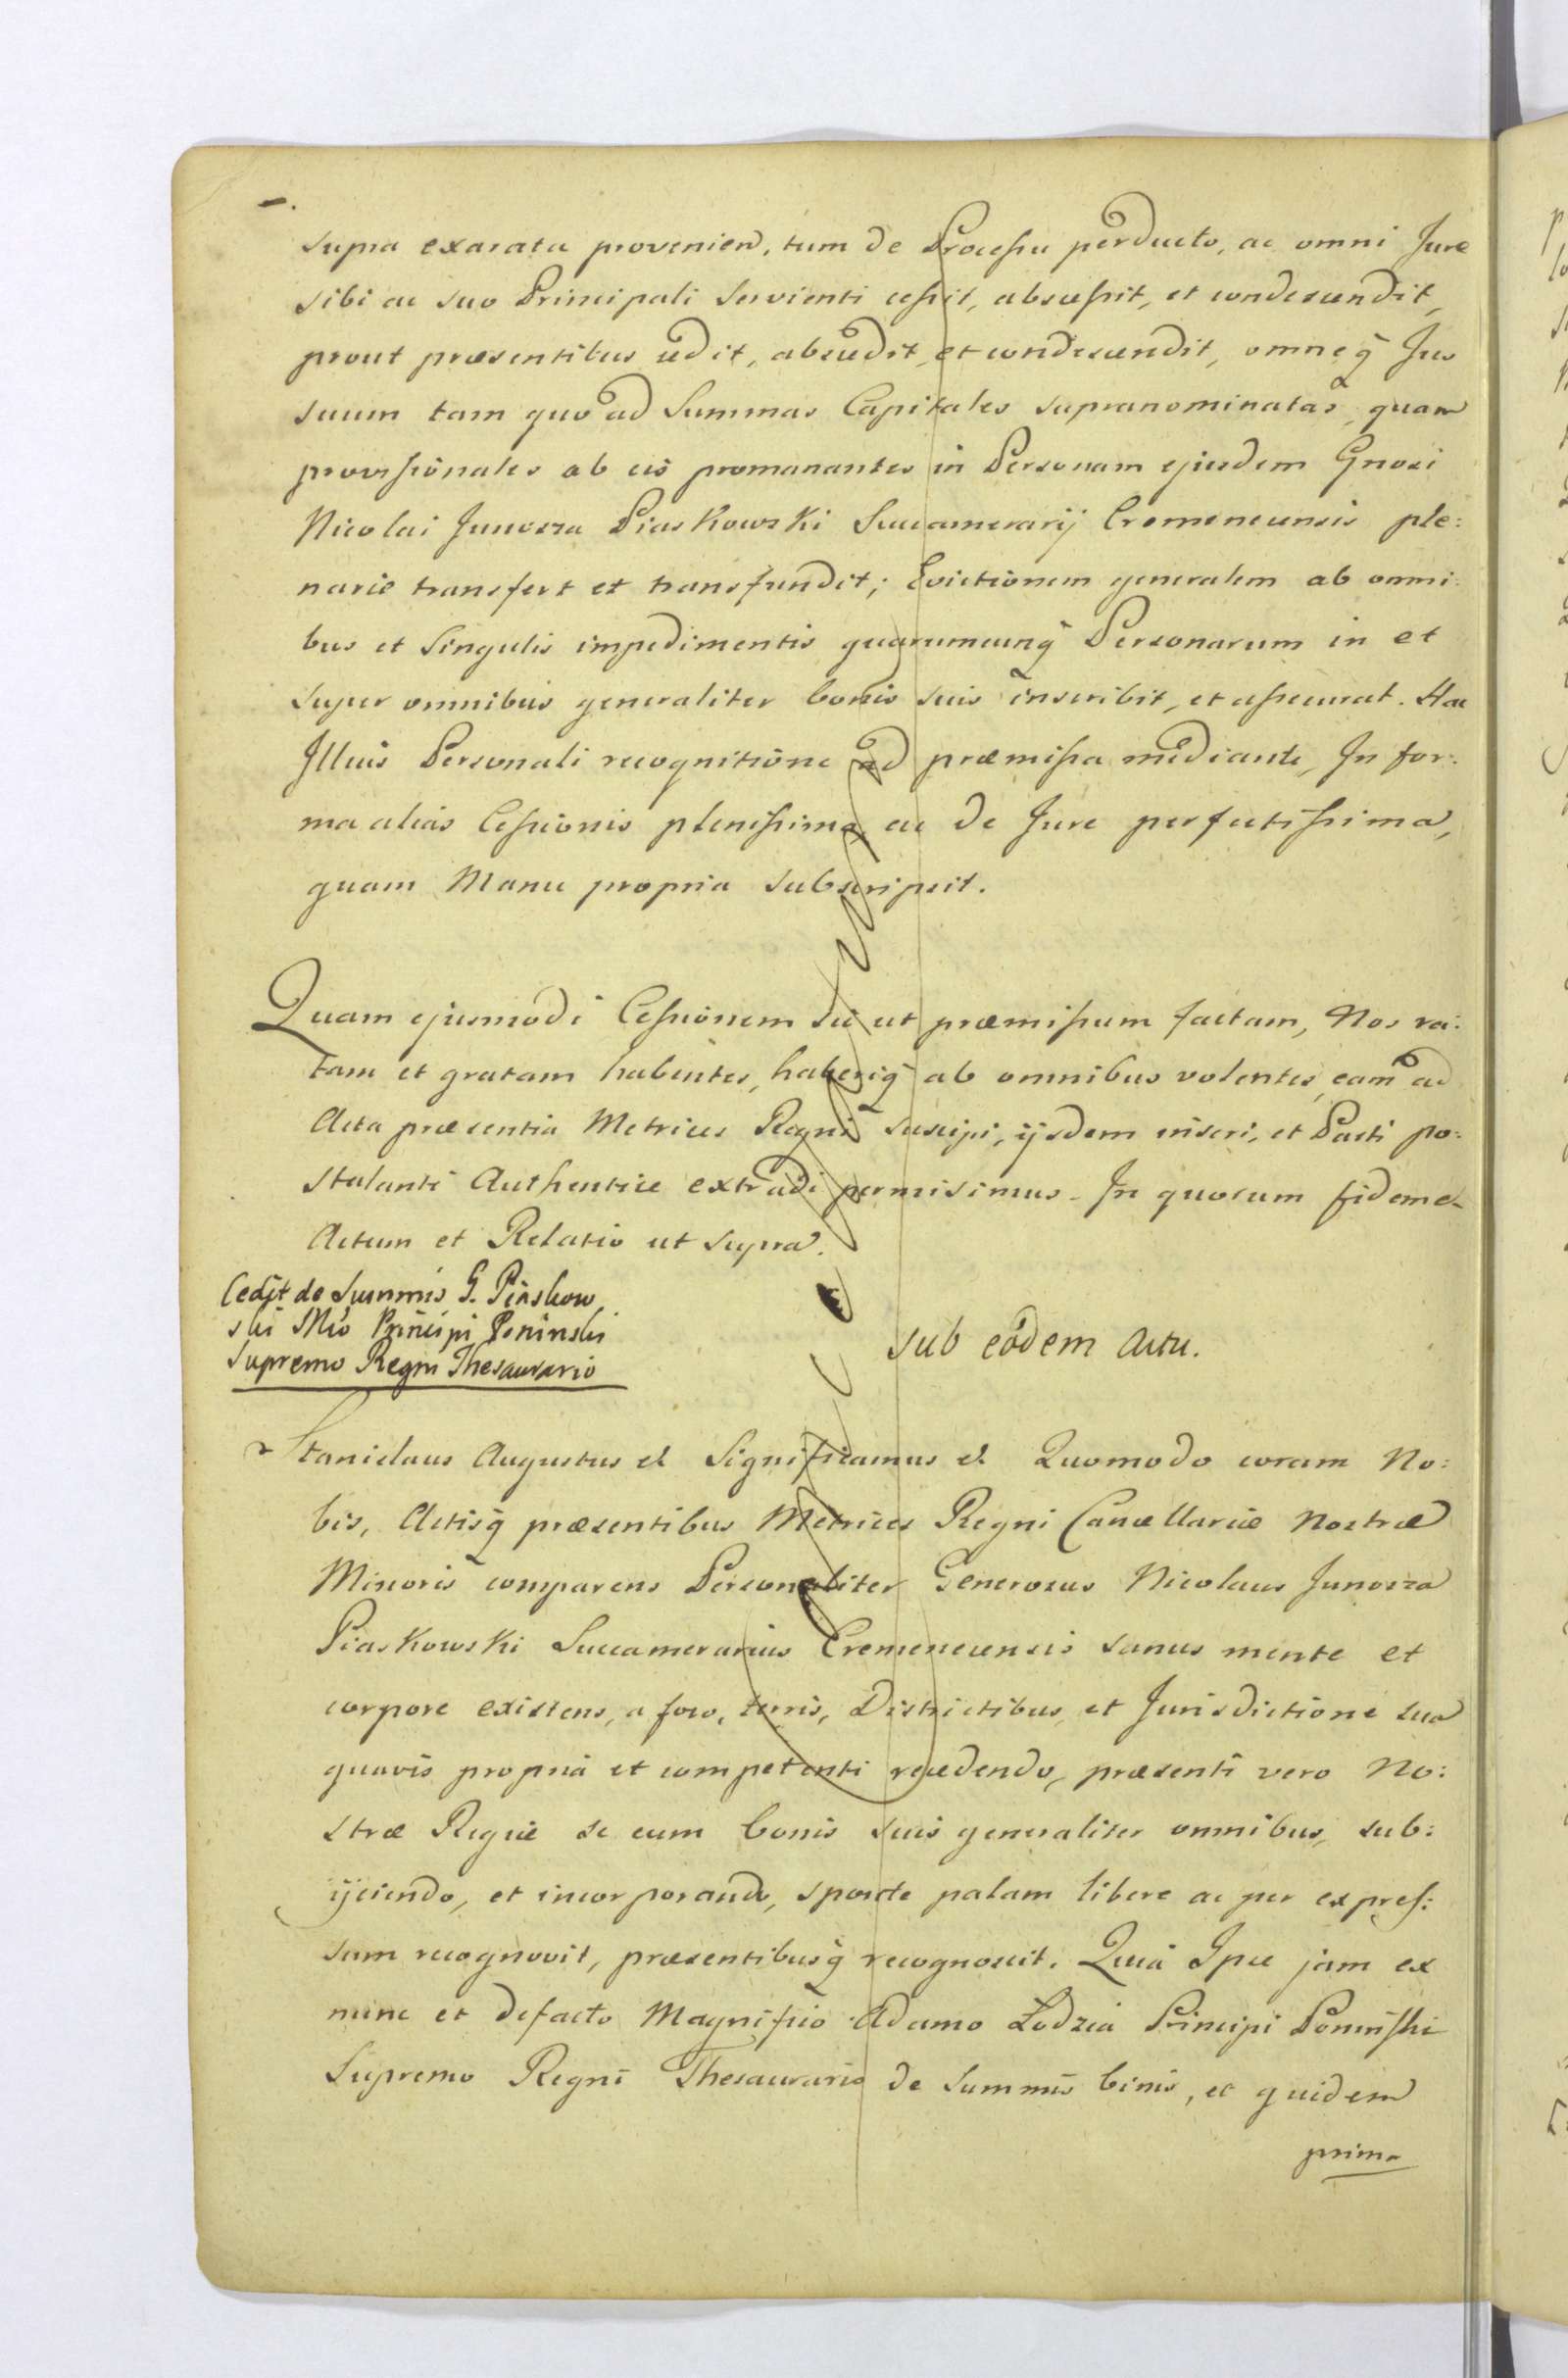 supra exarata provenien, tum de Processu perducto, ac omni Jure
sibi ac suo Principali servienti cessit, abscessit, et condescendit,
prout præsentibus cedit, abscedit, et condescendit, omneq̃ Jus
suum tam quo ad Summas Capitales supranominatas, quam
provisionales ab eis promanantes in Personam ejusdem Gnosi
Nicolai Junosza Piaskowski Succamerarij Cremenecensis ple:
narie transfert et transfundit; Evictionem generalem ab omni:
bus et Singulis impedimentis quarumcunq̃ Personarum in et
super omnibus generaliter bonis suis inscribit, et assecurat. Hac
Illius Personali recognitione ad præmissa mediante, In for:
ma alias Cessionis plenissima, ac de Jure perfectissima,
quam Manu propria subscripsit.
Quam ejusmodi Cessionem sic ut præmissum factam, Nos ra:
tam et gratam habentes, haberiq̃ ab omnibus volentes, eam ad
Acta præsentia Metrices Regni suscipi, ijsdem inseri, et Parti po:
stulanti Authentice extradi permisimus. In quorum fidem
Actum et Relatio ut supra.
Cedit de Summis G. Piaskow
ski Mfco Principi Poninski
Supremo Regni Thesaurario
Sub eodem Actu.
Stanislaus Augustus et Significamus et Quomodo coram No:
bis, Actisq̃ præsentibus Metrices Regni Cancellariæ Nostræ
Minoris comparens Personaliter Generosus Nicolaus Junosza
Piaskowski Succamerarius Cremenecensis sanus mente et
corpore existens, a foro, terris, Districtibus, et Jurisdictione sua
quavis propria et competenti recedendo, præsenti vero No:
stræ Regiæ se cum bonis suis generaliter omnibus, sub:
ijciendo, et incorporando, sponte palam libere ac per expres:
sum recognovit, præsentibusq̃ recognoscit. Quia Ipse jam ex
nunc et defacto Magnifico Adamo Łodzia Principi Poninski
Supremo Regni Thesaurario de Summis binis, et quidem
prima